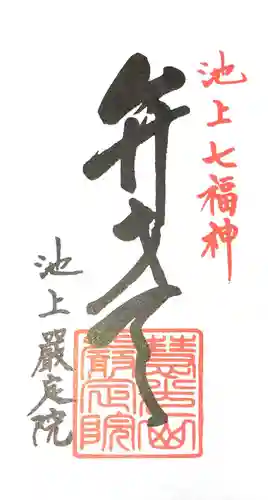 池上七福神
弁才天
池上 厳定院